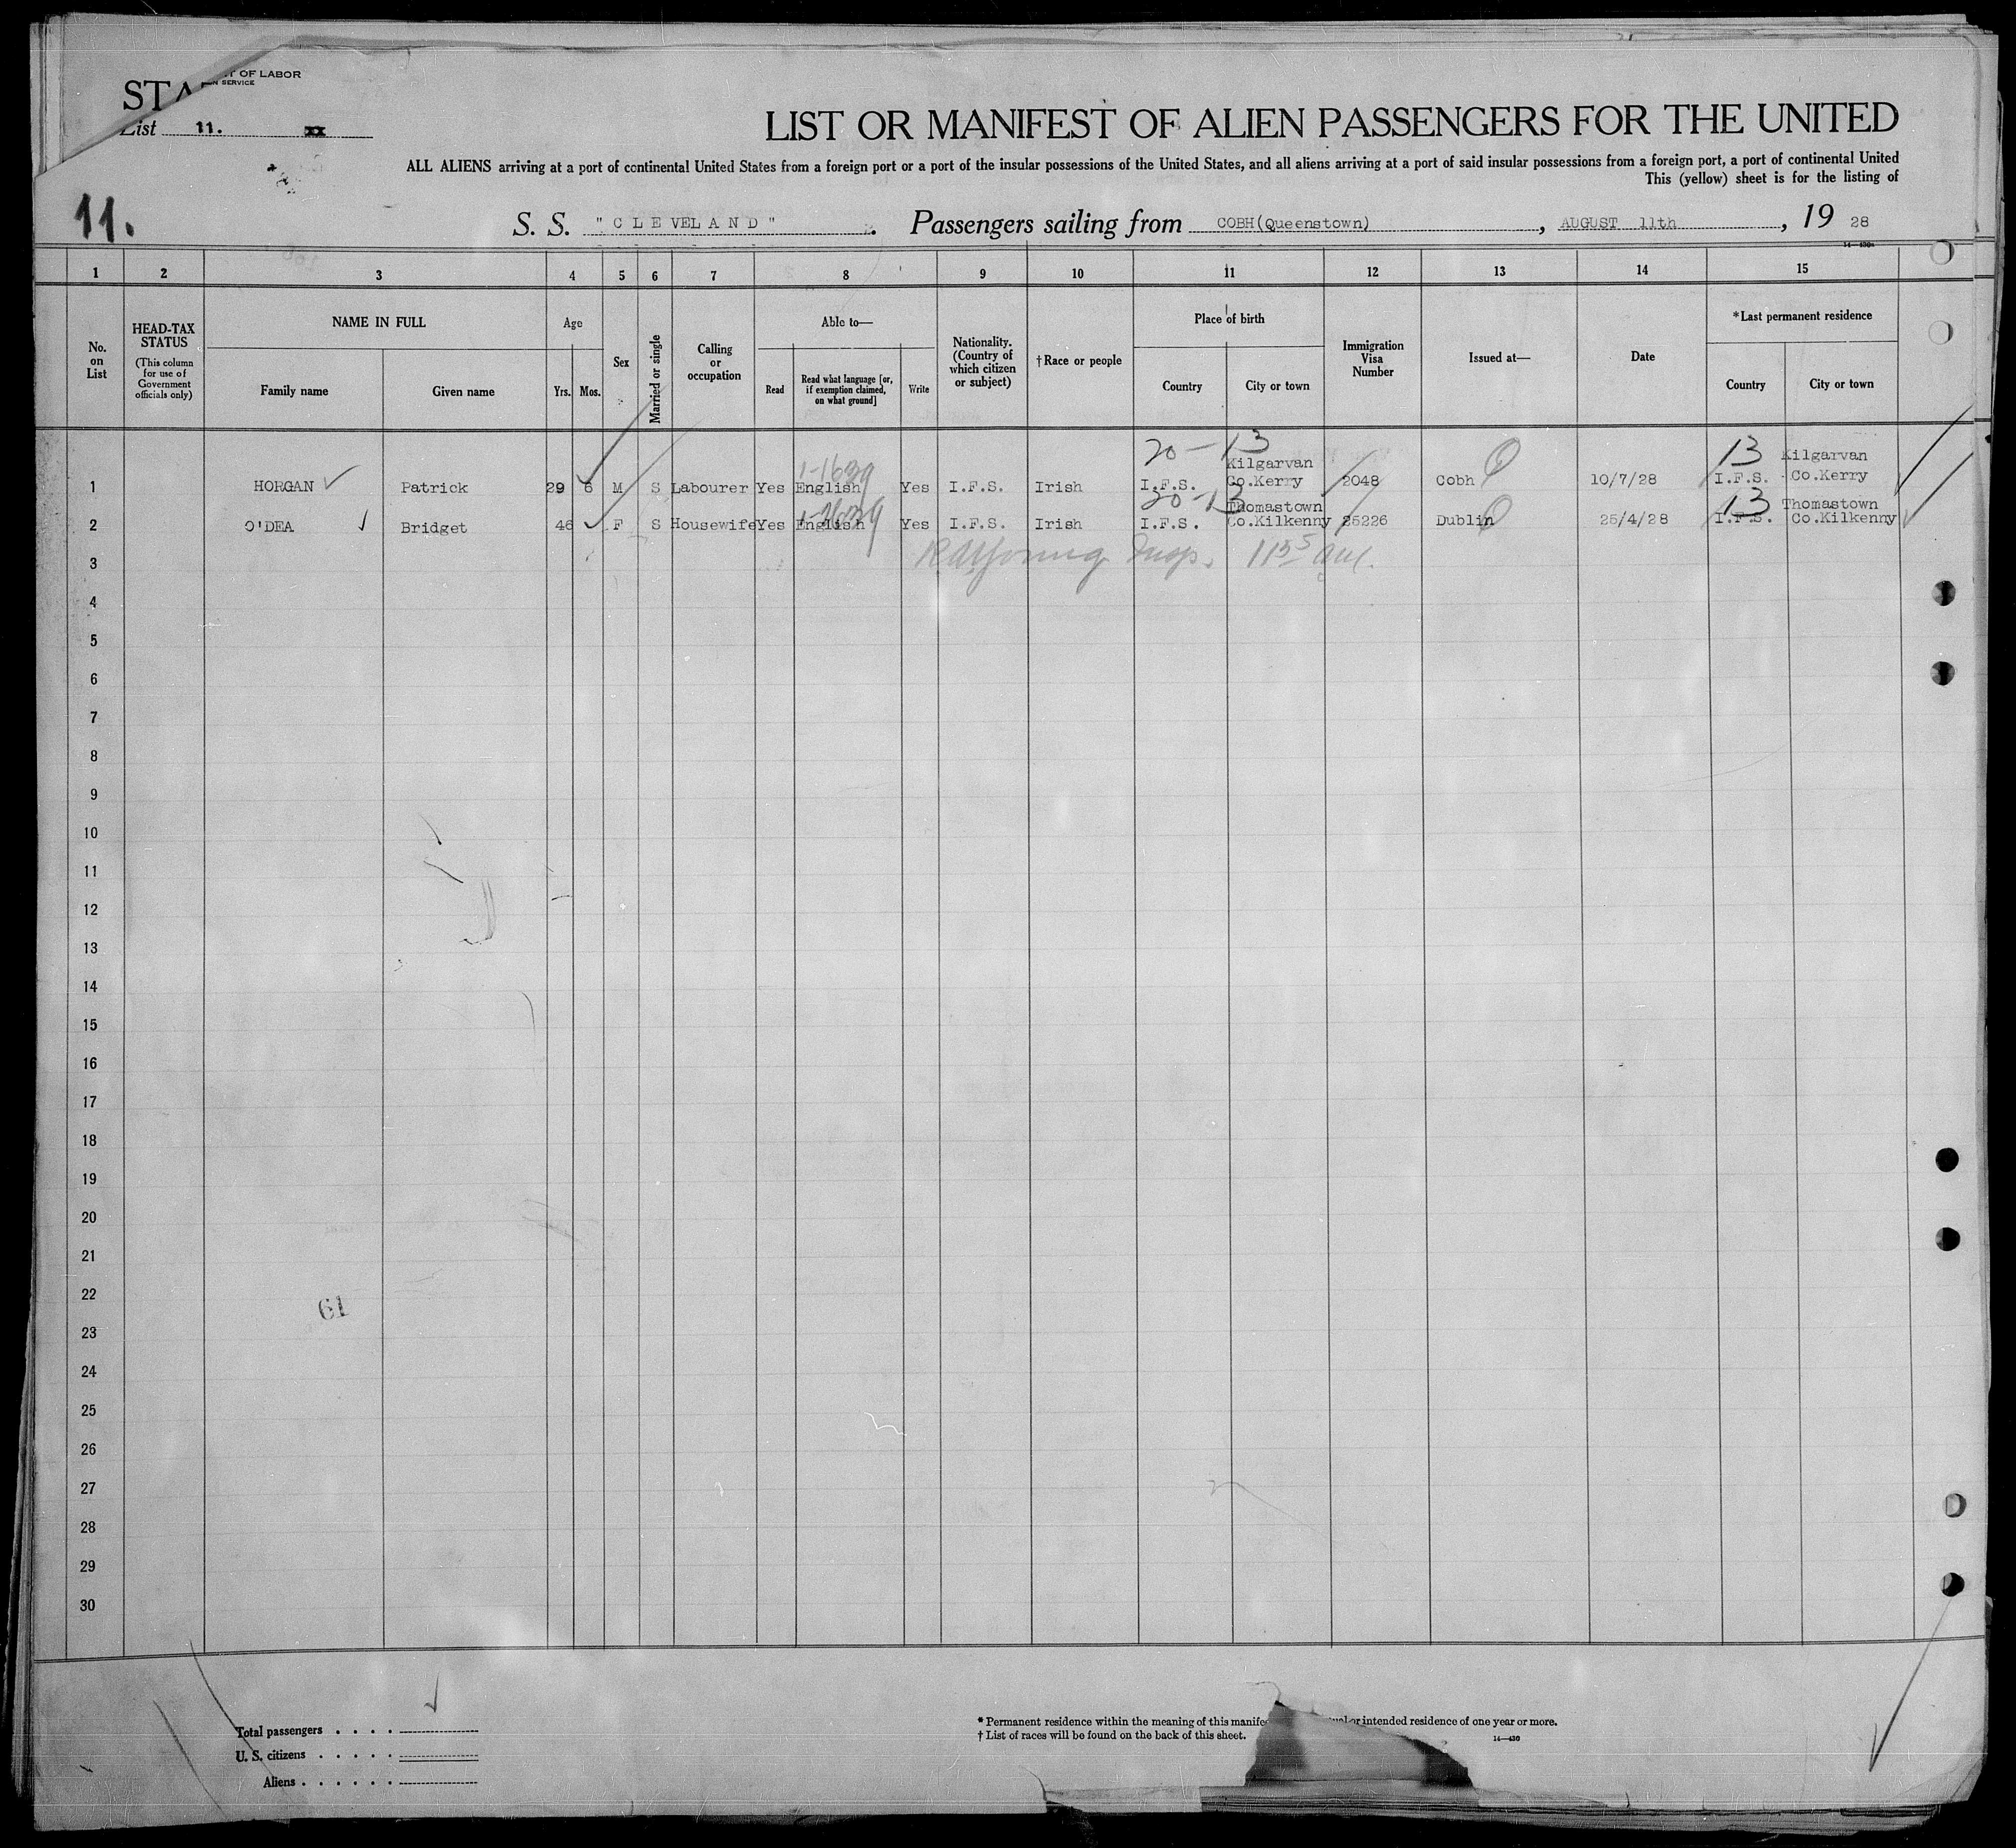 T OF LABOR
N SERVICE
STA
List 11. xx
LIST OR MANIFEST OF ALIEN PASSENGERS FOR THE UNITED
ALL ALIENS arriving at a port of continental United States from a foreign port or a port of the insular possessions of the United States, and all aliens arriving at a port of said insular possessions from a foreign port, a port of continental United
This (yellow) sheet is for the listing of
11.
S. S. "CLEVELAND". Passengers sailing from COBH(Queenstown), AUGUST 11th, 19 28
1 2 3 4 5 6 7 8 9 10 11 12 13 14 15
No. on List
HEAD-TAX STATUS
(This column for use of Government officials only)
NAME IN FULL
Family name Given name
Age
Yrs. Mos.
Sex
Married or single
Calling or occupation
Able to—
Read
Read what language [or, if exemption claimed, on what ground]
Write
Nationality. (Country of which citizen or subject)
†Race or people
Place of birth
Country City or town
Immigration Visa Number
Issued at—
Date
*Last permanent residence
Country City or town
20-13 13
1-1639
Kilgarvan Kilgarvan
1 HORGAN Patrick 29 6 M S Labourer Yes English Yes I.F.S. Irish I.F.S. Co.Kerry 2048 Cobh 10/7/28 I.F.S. Co.Kerry
20-13 13
Thomastown Thomastown
2 O'DEA Bridget 46 F S Housewife Yes English Yes I.F.S. Irish I.F.S. Co.Kilkenny 25226 Dublin 25/4/28 I.F.S. Co.Kilkenny
3 Insp.
4
5
6
7
8
9
10
11
12
13
14
15
16
17
18
19
20
21
22
61
23
24
25
26
27
28
29
30
Total passengers
U. S. citizens
Aliens
* Permanent residence within the meaning of this manife or intended residence of one year or more.
† List of races will be found on the back of this sheet.
14—430